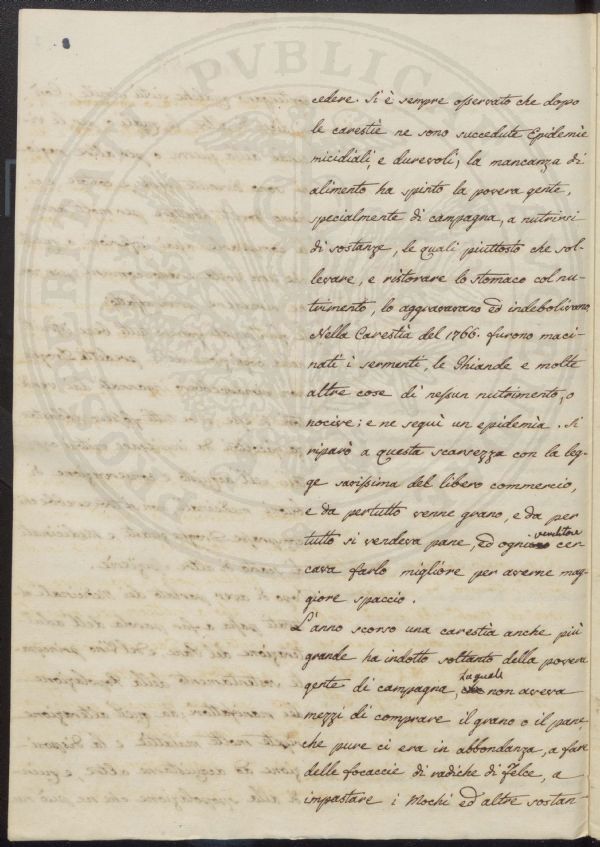 cedere. Si è sempre osservato che dopo
le carestie ne sono succedute Epidemie
micidiali, e durevoli, la mancanza di
alimento ha spinto la povera gente,
specialmente di campagna, a nutrirsi
di sostanze, le quali piuttosto che sol-
levare, e ristorare lo stomaco col nu-
trimento, lo aggravavano ed indebolivano.
Nella Carestìa del 1766. furono maci-
nati i sermenti, le Ghiande e molte
altre cose di nessun nutrimento, o
nocive: e ne seguì un epidemìa. Si
riparò a questa scarsezza con la leg-
ge savissima del libero commercio,
e da pertutto venne grano, e da per
tutto si vendeva pane, ed ogni venditore cer-
cava farlo migliore per averne mag-
giore spaccio.
L'anno scorso una carestìa anche più
grande ha indotto soltanto della povera
gente di campagna, la quale non aveva
mezzi di comprare il grano o il pane,
che pure ci era in abbondanza, a fare
delle focaccie di radiche di felce, a
impastare i Mochi ed altre sostan-